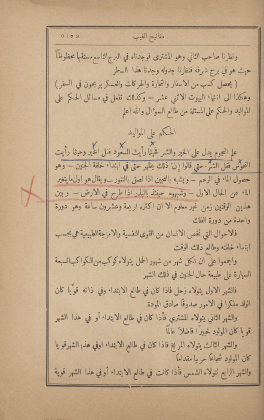 مفاتيح الغيب
ونظرنا صاحب الثاني وهو المشتري فوجدناه في البرج التاسع مستقيماً محظوظاً
حيث هو في برج شرفه فنظرنا جدوله وجدنا هذا السطر
(يحصل كسب من الاسفار والتجارة والحركات والعسكريون في السفر)
وهكذا الى انتهاء البيوت الاثني عشر — وكذلك تفعل في مسائل الحكم على
المواليد والحكم على المسئلة من طالع السؤال والله اعلم
الحكم على المواليد
علم النجوم يدل على الخير والشر فمتى رأيت السعود فقل الخير وحيثما رأيت
النحوس فقل الشر حتى قالوا إن ذلك يظهر حتى في ابتداء خلقة الجنين — وهو
حصول الماء في الرحم — ويشبه بالعجين اذا لصق بالتنور — وقال هو اول ما يتغير
الماء عن الحال الاول — وشبهوه حينئذ بالبذر اذا طرح في الارض — و بين
هذين الوقتين زمن غير معلوم الا ان اكثاره اربعة وعشرون ساعة وهو دورة
واحدة من دورة الفلك
فالاحوال التي تخص الانسان من القوى النفسية والامزجة الطبيعية هي بحسب
ابتداء خلقته وطالع ذلك الوقت
واجمعوا على ان لكل شهر من شهور الحمل يتولاه كوكب من الكواكب السبعة
السيارة على طبيعة حال الجنين في ذلك الشهر
فالشهر الاول يتولاه زحل فاذا كان في طالع الابتداء وفي ذاته قوياً كان
الولد متفكرا في الامور صدوقا صادق المودة
والشهر الثاني يتولاه المشتري فأذا كان في طالع الابتداء أو في هذا الشهر
قويا كان المولود خبيرا فاضلا عالماً
والشهر الثالث يتولاه المريخ فاذا كان في طالع الابتداء اوفي هذا الشهر قويا
كان المولود شجاعا حربيا مقداما
والشهر الرابع تتولاه الشمس فأذا كانت في طالع الابتداء أو في هذا الشهر قوية